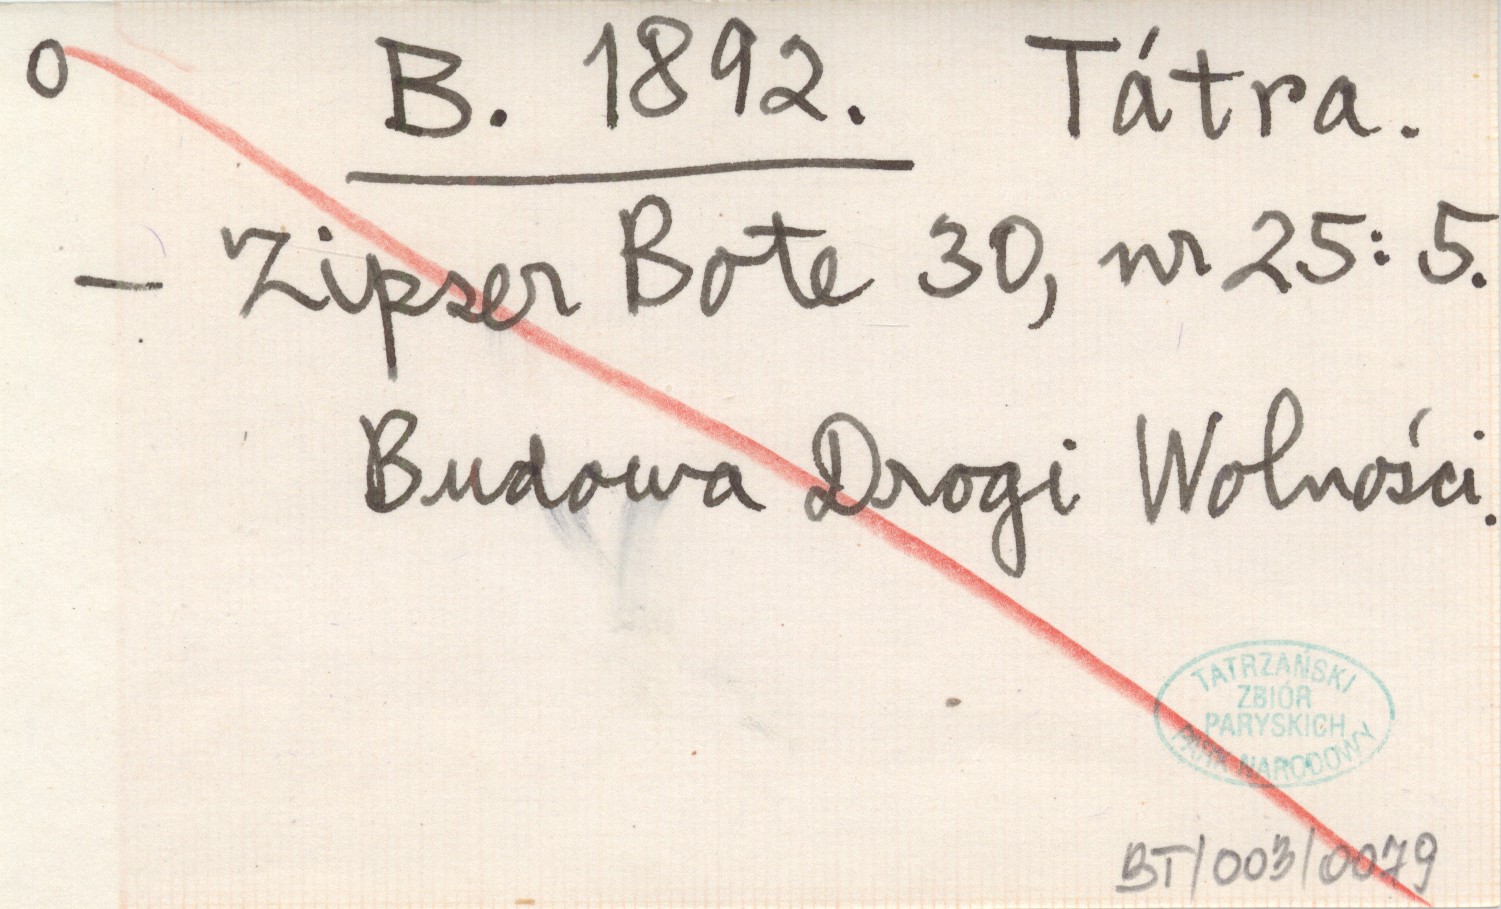 0 B. 1892. Tátra.
— Zipser Bote 30, nr 25: 5.
Budowa Drogi Wolności.
TATRZAŃSKI
ZBIÓR
PARYSKICH
PARK NARODOWY
BT/003/0079